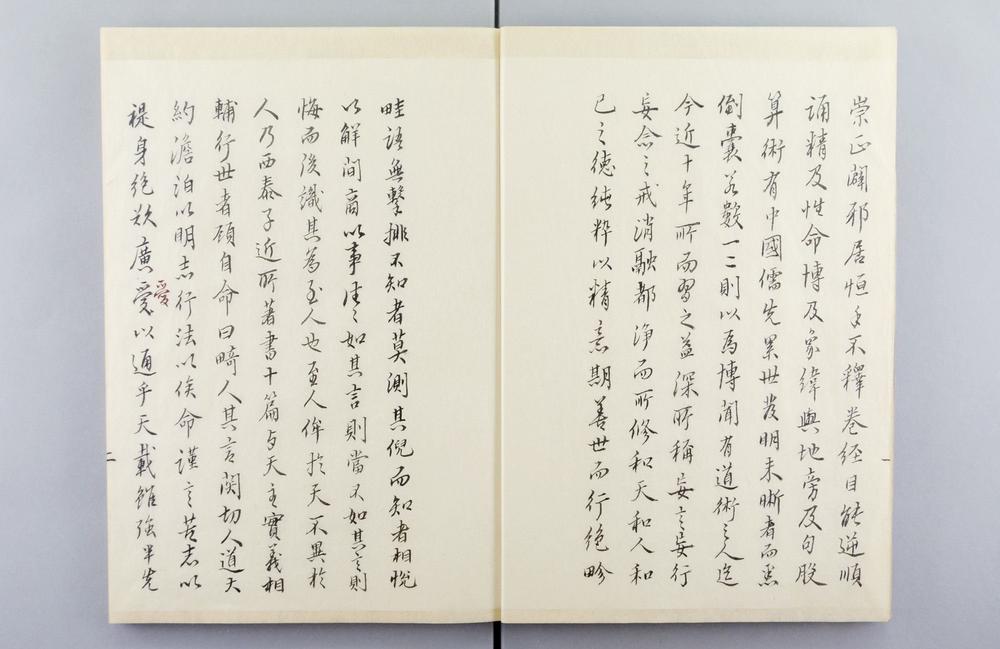 崇正闢邪居恒手不釋卷經目能逆順
誦精及性命博及象緯輿地旁及句股
算術有中國儒先累世發明未晰者而悉
倒囊若數一二則以為博聞有道術之人迄
今近十年所而習之益深所稱妄言妄行
妄念之戒消融都淨而所修和天和人和
己之德純粹以精意期善世而行絕畛
畦語無擊排不知者莫測其倪而知者相悅
以解間商以事徃〻如其言則當不如其言則
悔而後識其為至人也至人侔於天不異於
人乃西泰子近所著書十篇与天主實義相
輔行世者顧自命曰畸人其言關切人道大
約澹泊以明志行法以俟命謹言苦志以
禔身絕欲廣愛以通乎天載雖強半先
愛
一
二